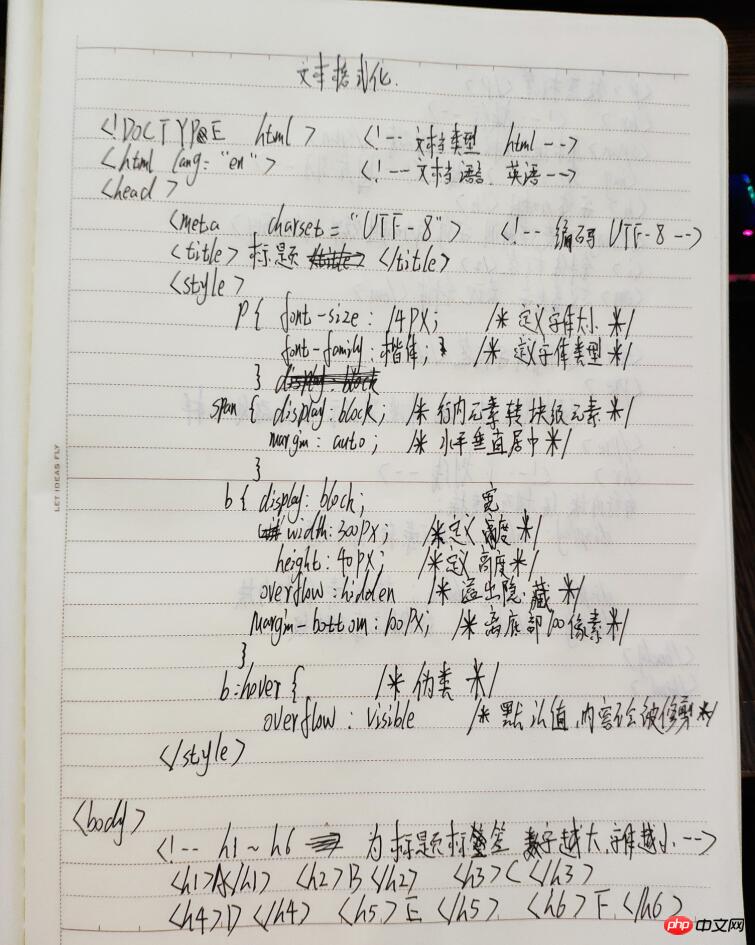 文本格式化.
<!DOCTYPE html> <!-- 文档类型 html -->
<html lang="en"> <!-- 文档语言. 英语 -->
<head>
<meta charset="UTF-8"> <!-- 编码 UTF-8 -->
<title>标题 </title>
<style>
p{ font-size: 14px; /* 定义字体大小 */
font-family:楷体; /* 定义字体类型 */
}
span{ display:block; /* 行内元素转块级元素 */
margin: auto; /* 水平垂直居中 */
}
b{ display: block;
width:300px; /*定义宽度 */
height:40px; /*定义高度*/
overflow:hidden /* 溢出隐藏 */
margin-bottom:100px; /* 离底部100像素 */
}
b:hover{ /* 伪类 */
overflow: visible /* 默认值,内容不会被修剪 */
</style>
<body>
<!-- h1~h6 为标题标签 数字越大,字体越小 -->
<h1>A</h1> <h2>B</h2> <h3>C</h3>
<h4>D</h4> <h5>E</h5> <h6>F</h6>
LET IDEAS FLY
php 中文网